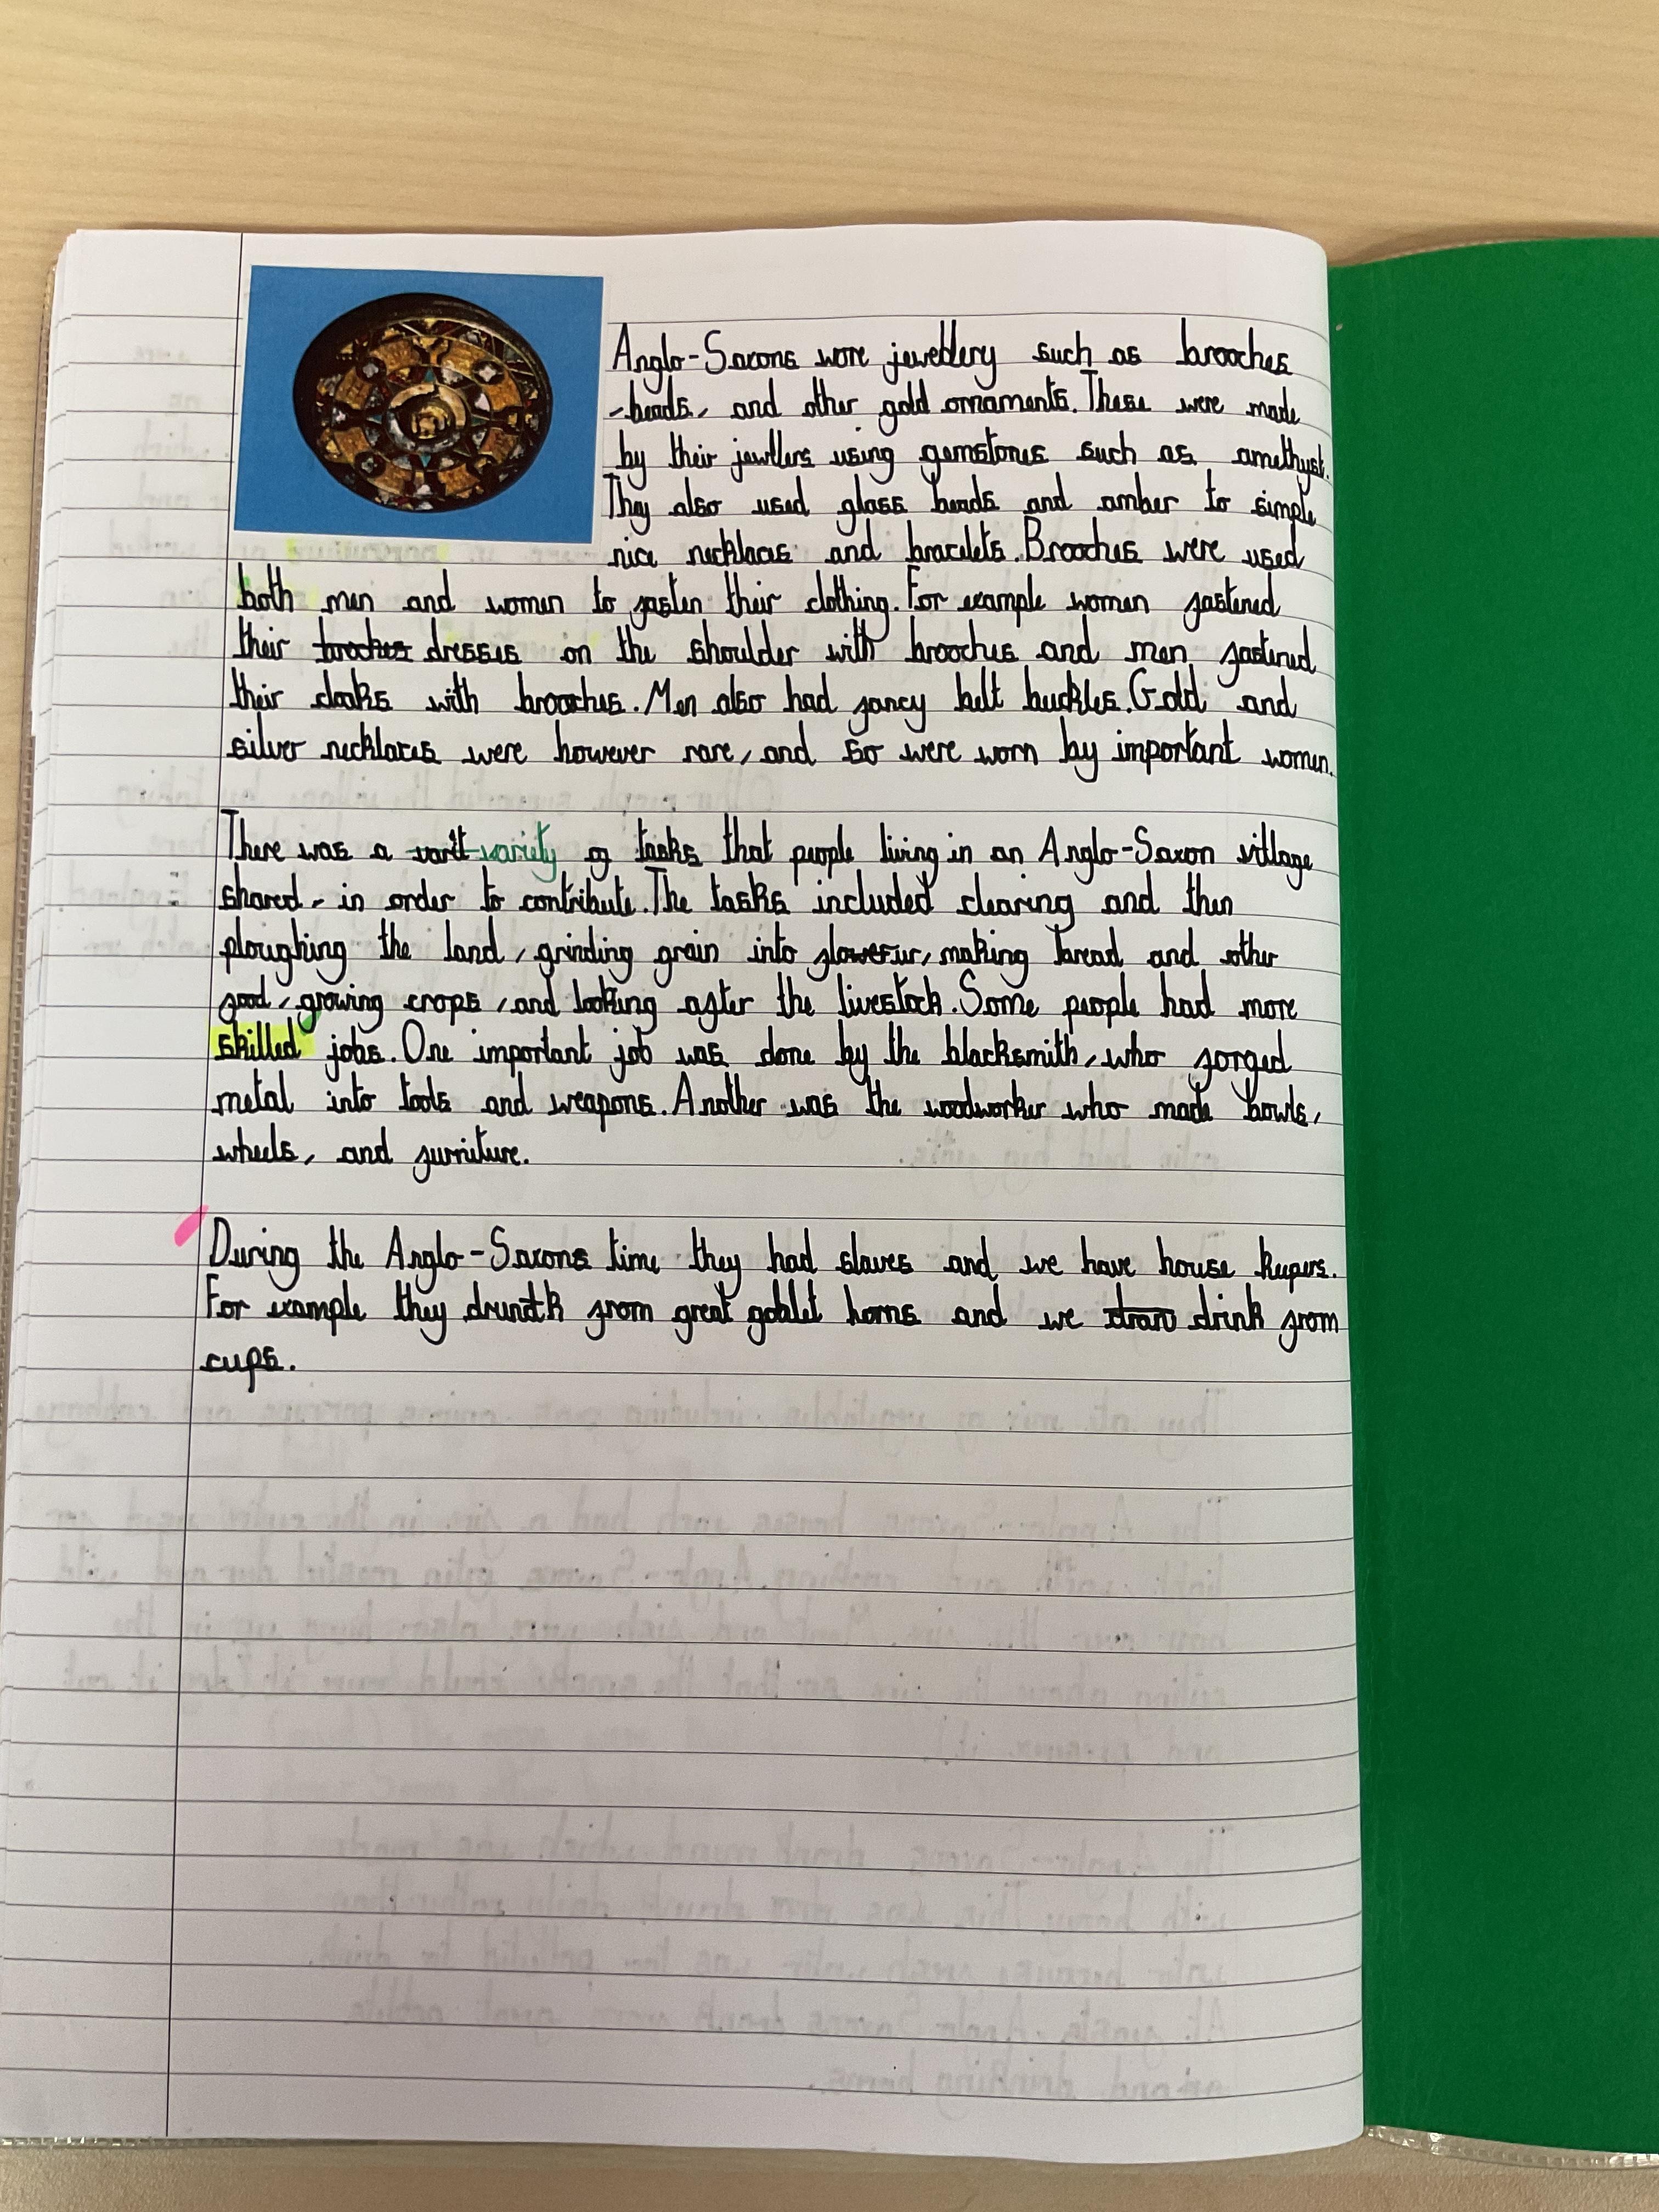 Anglo-Saxons wore jewellery such as brooches
, beads, and other gold ornaments. These were made
by their jewllers using gemstones such as amethyst.
They also used glass beads and amber to simple
nice necklaces and bracelets. Brooches were used
both men and women to fasten their clothing. For example women fastened
their brooches dresses on the shoulder with brooches and men fastened
their cloaks with brooches. Men also had fancy belt buckles. Gold and
silver necklaces were however rare, and so were worn by important women.
There was a varit variety of tasks that people living in an Anglo-Saxon village
shared, in order to contribute. The tasks included clearing and then
ploughing the land, grinding grain into making bread and other
food, growing crops, and looking after the livestock. Some people had more
skilled jobs. One important job was done by the blacksmith, who forged
metal into tools and weapons. Another was the woodworker who made bowls,
wheels, and furniture.
During the Anglo-Saxons time they had slaves and we have house keepers.
For example they from great goblet horns and we drink from
cups.